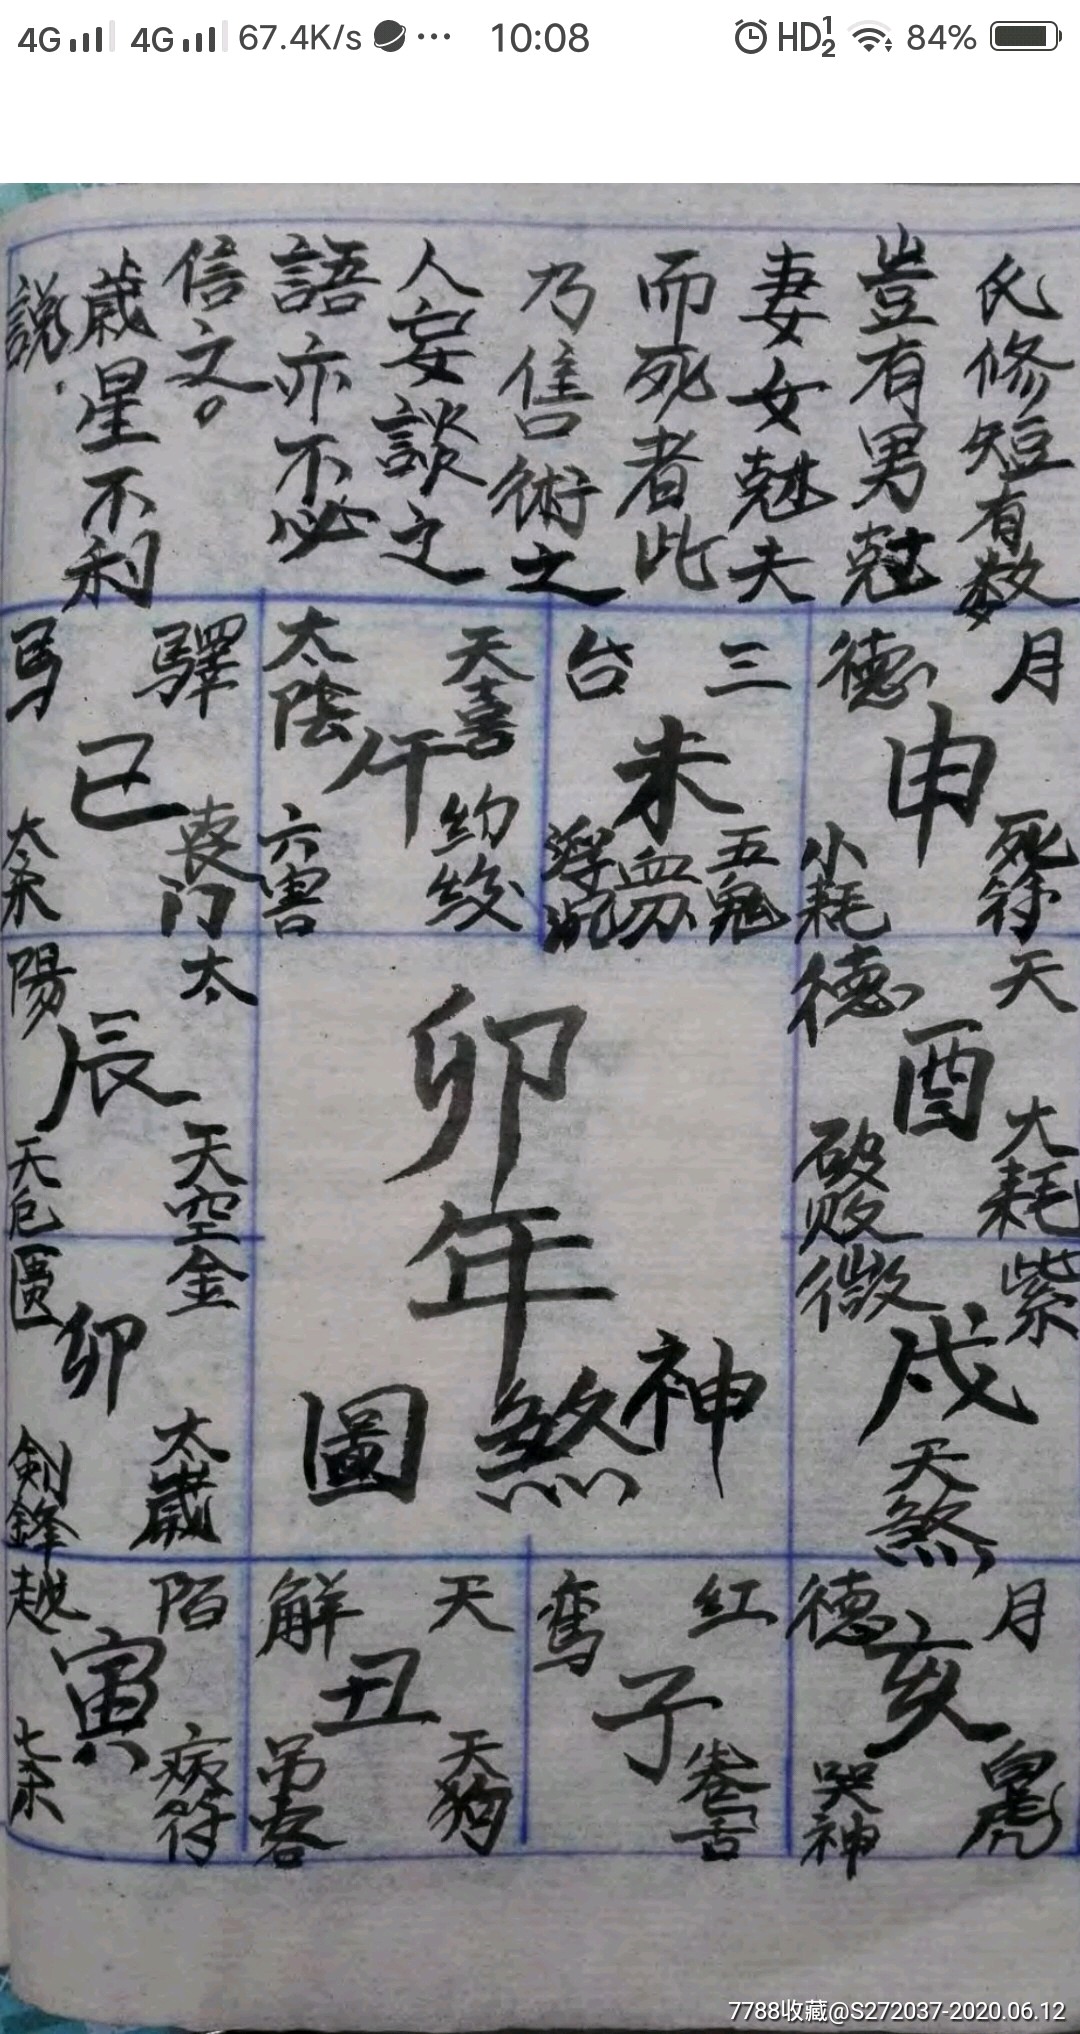 4G 4G 67.4K/s ··· 10:08 HD 1 2 84%
氏修短有数
豈有男尅
妻女尅夫
而死者此
乃售術之
人妄談之
語亦不必
信文。
歳星不利
説.
月德
申
死符
小耗
三台
未
五鬼
血刃
浮沉
天喜
太陰
午
勾絞
六害
驛馬
巳
喪门
太杀
天德
酉
大耗
破敗
太陽
辰
天空
天厄
卯年
神煞圖
紫微
戌
天煞
金匱
卯
太歲
剣鋒
月德
亥
白虎
哭神
红鸾
子
卷舌
天解
丑
天狗
吊客
陌越
寅
病符
七杀
7788收藏@S272037-2020.06.12